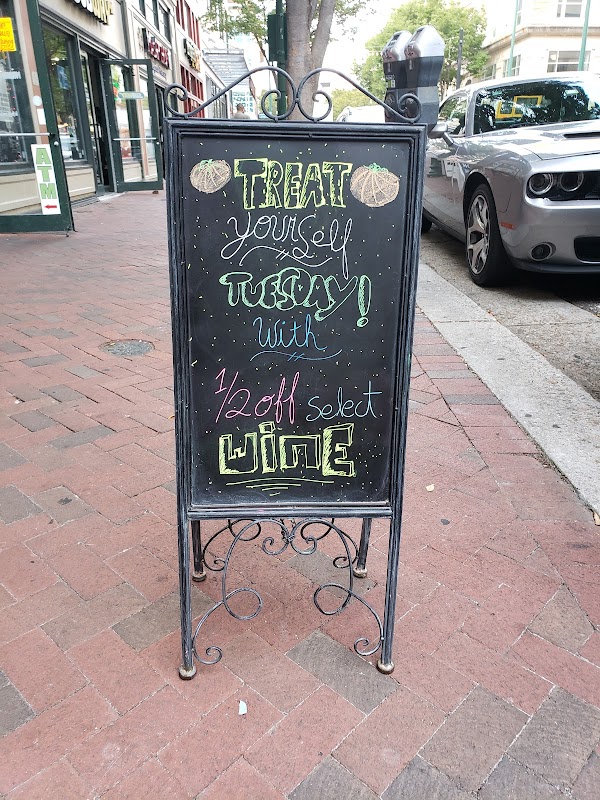 TREAT
yourself
TUESDAY!
with
1/2 off select
WINE
ATM